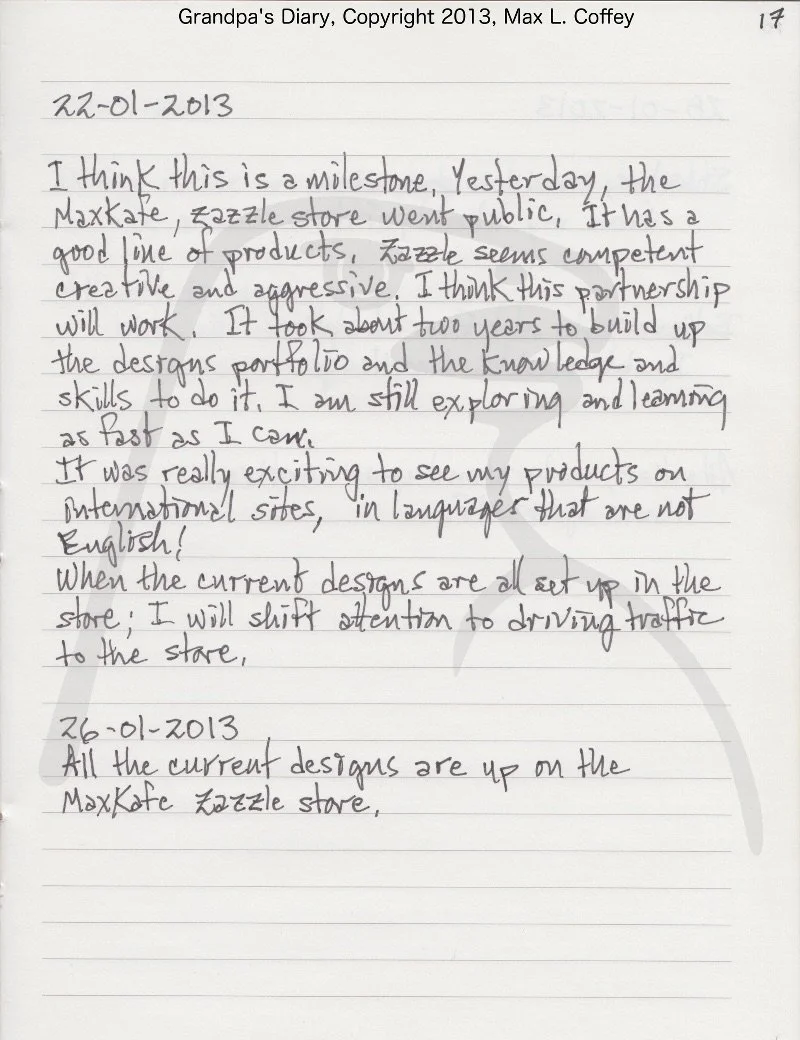 Grandpa's Diary, Copyright 2013, Max L. Coffey
17
22-01-2013
I think this is a milestone. Yesterday, the
MaxKafe, Zazzle store went public. It has a
good line of products. Zazzle seems competent
creative and aggressive. I think this partnership
will work. It took about two years to build up
the designs portfolio and the knowledge and
skills to do it. I am still exploring and learning
as fast as I can.
It was really exciting to see my products on
international sites, in languages that are not
English!
When the current designs are all set up in the
store; I will shift attention to driving traffic
to the store.
26-01-2013
All the current designs are up on the
MaxKafe Zazzle store.